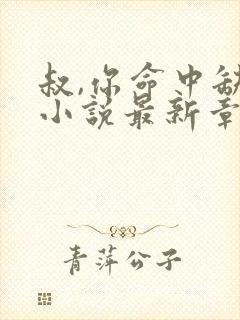 叔,你命中缺
小说最新章
青萍公子